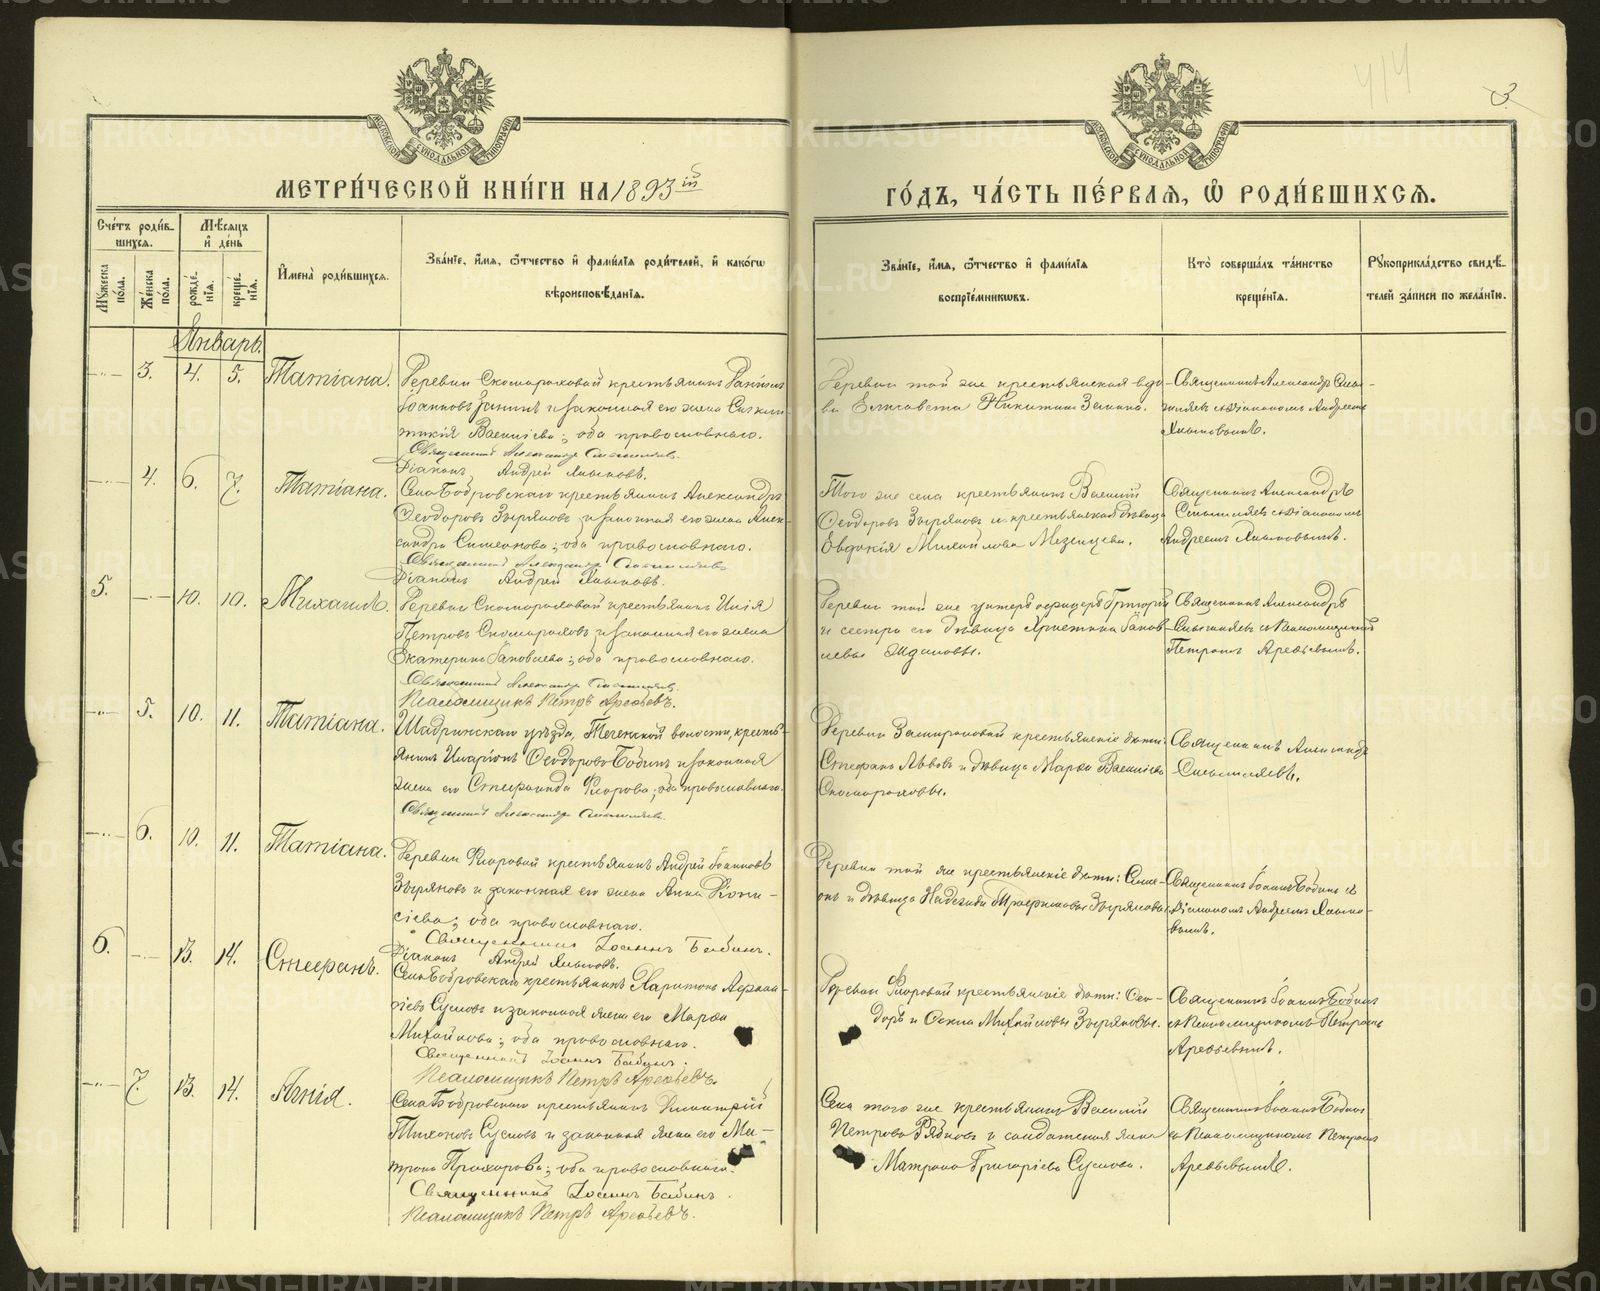 414
3
МОСКОВСКОЙ СѴНОДАЛЬНОЙ ТИПОГРАФІИ
МОСКОВСКОЙ СѴНОДАЛЬНОЙ ТИПОГРАФІИ
МЕТРИ́ЧЕСКОЙ КНИ́ГИ НА 1893 ій
ГО́ДЪ, ЧА́СТЬ ПЕ́РВАѦ, Ѿ РОДИ́ВШИХСѦ.
Сче́тъ роди́в-
шихся.
Мѣсяцъ
и де́нь
Мꙋ́жеска по́ла.
Же́нска по́ла.
рожде́нїя.
креще́нїя.
И҆мена̀ роди́вшихся.
Зва́нїе, и҆́мя, ѻ҆́тчество и҆ фами́лїя роди́телей, и҆ како́гѡ
вѣроисповѣ́данїя.
Зва́нїе, и҆́мя, ѻ҆́тчество и҆ фами́лїя
воспрїе́мникѡвъ.
Кто̀ соверша́лъ та́инство
креще́нїя.
Рꙋкоприкла́дство свидѣ́-
телей за́писи по жела́нїю.
Январь.
3. 4. 5. Татіана.
Деревни Скомороховой крестьянинъ
Іоанновъ и законная его жена
Васильева; оба православнаго.
Священникъ Александръ
Діаконъ Андрей
Деревни той же крестьянская вдо-
ва Елисавета Никитина
Священникъ Александръ
съ діакономъ Андреемъ
4. 6. 7. Татіана.
Села Бобровскаго крестьянинъ Александръ
Ѳеодоровъ Зыряновъ и законная его жена Алек-
сандра Симеонова; оба православнаго.
Священникъ Александръ
Діаконъ Андрей
Того же села крестьянинъ Василій
Ѳеодоровъ Зыряновъ и крестьянская дѣвица
Евдокія Михайлова Мезенцева.
Священникъ Александръ
съ діакономъ
Андреемъ
5. 10. 10. Михаилъ.
Деревни Скомороховой крестьянинъ Илія
Петровъ Скомороховъ и законная его жена
Екатерина Іаковлева; оба православнаго.
Священникъ Александръ
Псаломщикъ Петръ Арефьевъ.
Деревни той же унтеръ офицеръ Григорій
и сестра его дѣвица Христина Іаков-
левы Ждановы.
Священникъ Александръ
съ псаломщикомъ
Петромъ Арефьевымъ.
5. 10. 11. Татіана.
Шадринскаго уѣзда, Теченской волости, кресть-
янинъ Иларіонъ Ѳеодоровъ Бабинъ и законная
жена его Стефанида Флорова; оба православнаго.
Священникъ Александръ
Деревни крестьянскіе дѣти:
Стефанъ Львовъ и дѣвица Марѳа Васильева
Скомороховы.
Священникъ Александръ
6. 10. 11. Татіана.
Деревни Флоровой крестьянинъ Андрей Іоанновъ
Зыряновъ и законная его жена Анна Діони-
сіева; оба православнаго.
Священникъ Іоаннъ Бабинъ.
Діаконъ Андрей
Деревни той же крестьянскіе дѣти: Симе-
онъ и дѣвица Надежда Зыряновы.
Священникъ Іоаннъ Бабинъ съ
діакономъ Андреемъ
6. 13. 14. Стефанъ.
Села Бобровскаго крестьянинъ Харитонъ Афана-
сіевъ Сусловъ и законная жена его Марѳа
Михайлова; оба православнаго.
Священникъ Іоаннъ Бабинъ.
Псаломщикъ Петръ Арефьевъ.
Деревни Флоровой крестьянскіе дѣти: Ѳео-
доръ и Ѳекла Михайловы Зыряновы.
Священникъ Іоаннъ Бабинъ
съ псаломщикомъ Петромъ
Арефьевымъ.
7. 13. 14. Аннія.
Села Бобровскаго крестьянинъ Димитрій
Тихоновъ Сусловъ и законная жена его Ма-
трона Прохорова; оба православнаго.
Священникъ Іоаннъ Бабинъ.
Псаломщикъ Петръ Арефьевъ.
Села того же крестьянинъ Василій
Петровъ и солдатская жена
Матрона Григоріева Суслова.
Священникъ Іоаннъ Бабинъ
съ псаломщикомъ Петромъ
Арефьевымъ.
METRIKI.GASO-URAL.RU